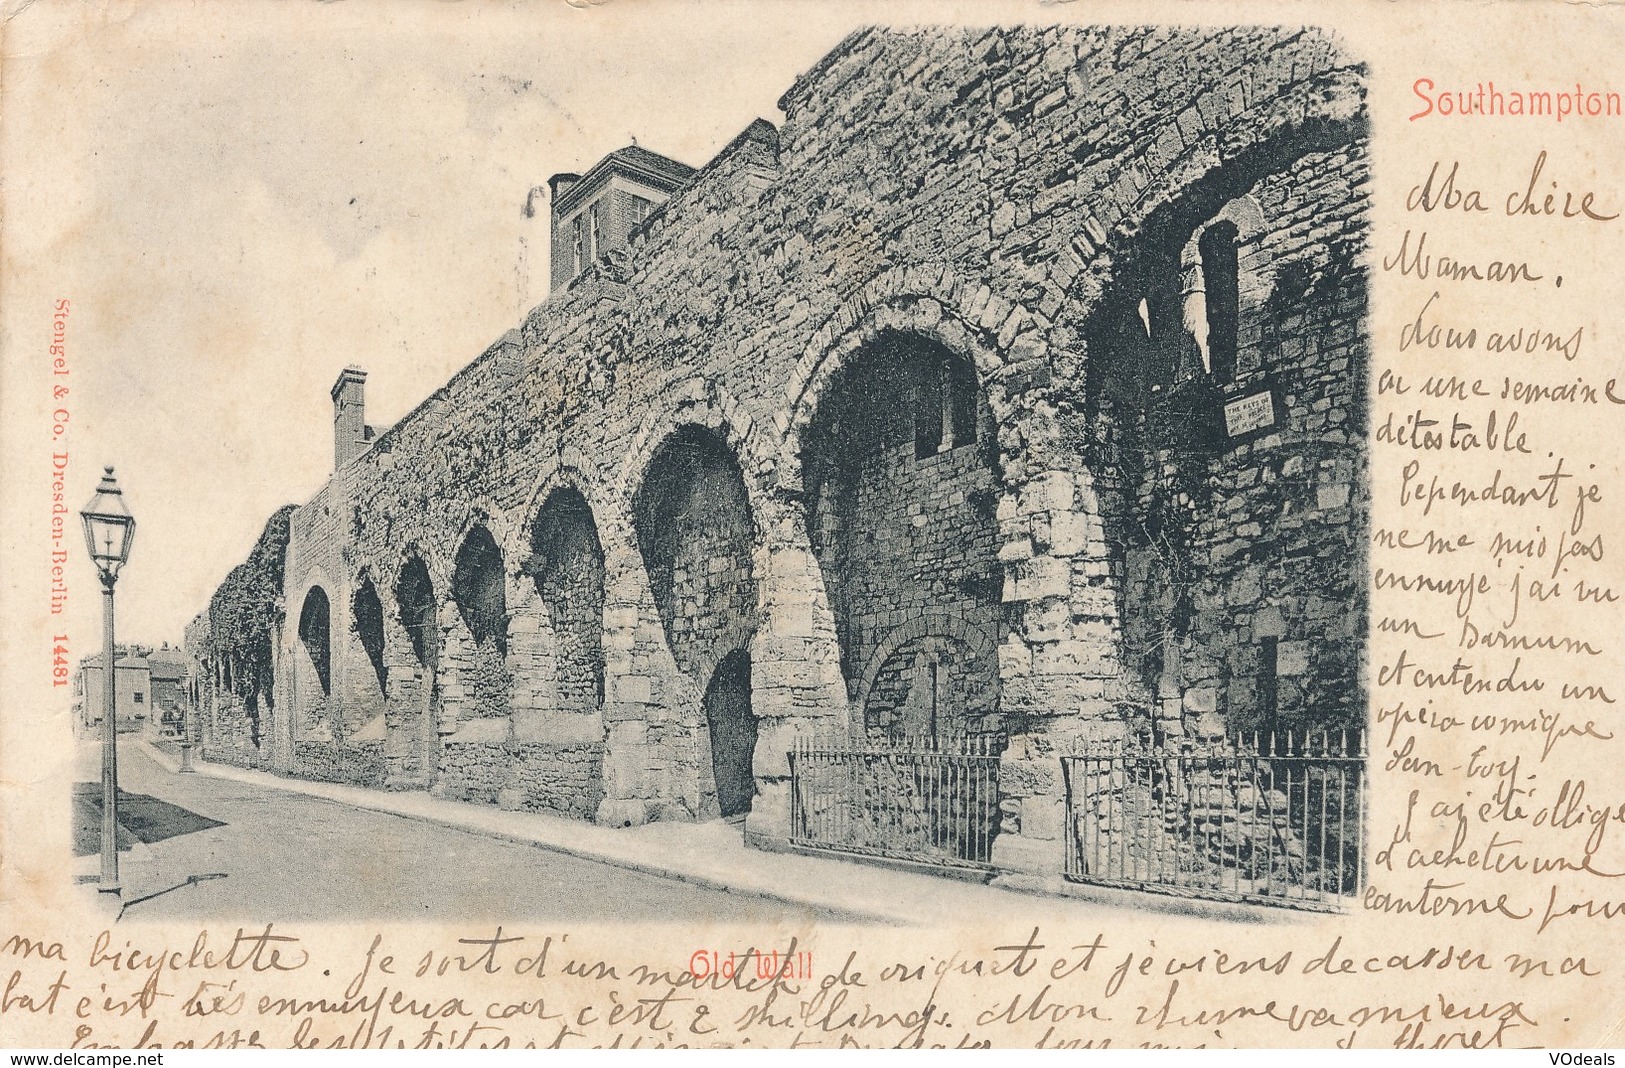 Southampton
Ma chère
Maman.
Nous avons
eu une semaine
détestable.
Cependant je
ne me suis pas
ennuyé j'ai vu
un Barnum
et entendu un
opéra comique
San-Toy.
J'ai été obligé
d'acheter une
lanterne pour
ma bicyclette. Je sort d'un match de criquet et je viens de casser ma
Old Wall
bat c'est très ennuyeux car c'est 2 shillings. Mon rhume va mieux.
Embrasse les
Stengel & Co. Dresden-Berlin 14481
VOdeals